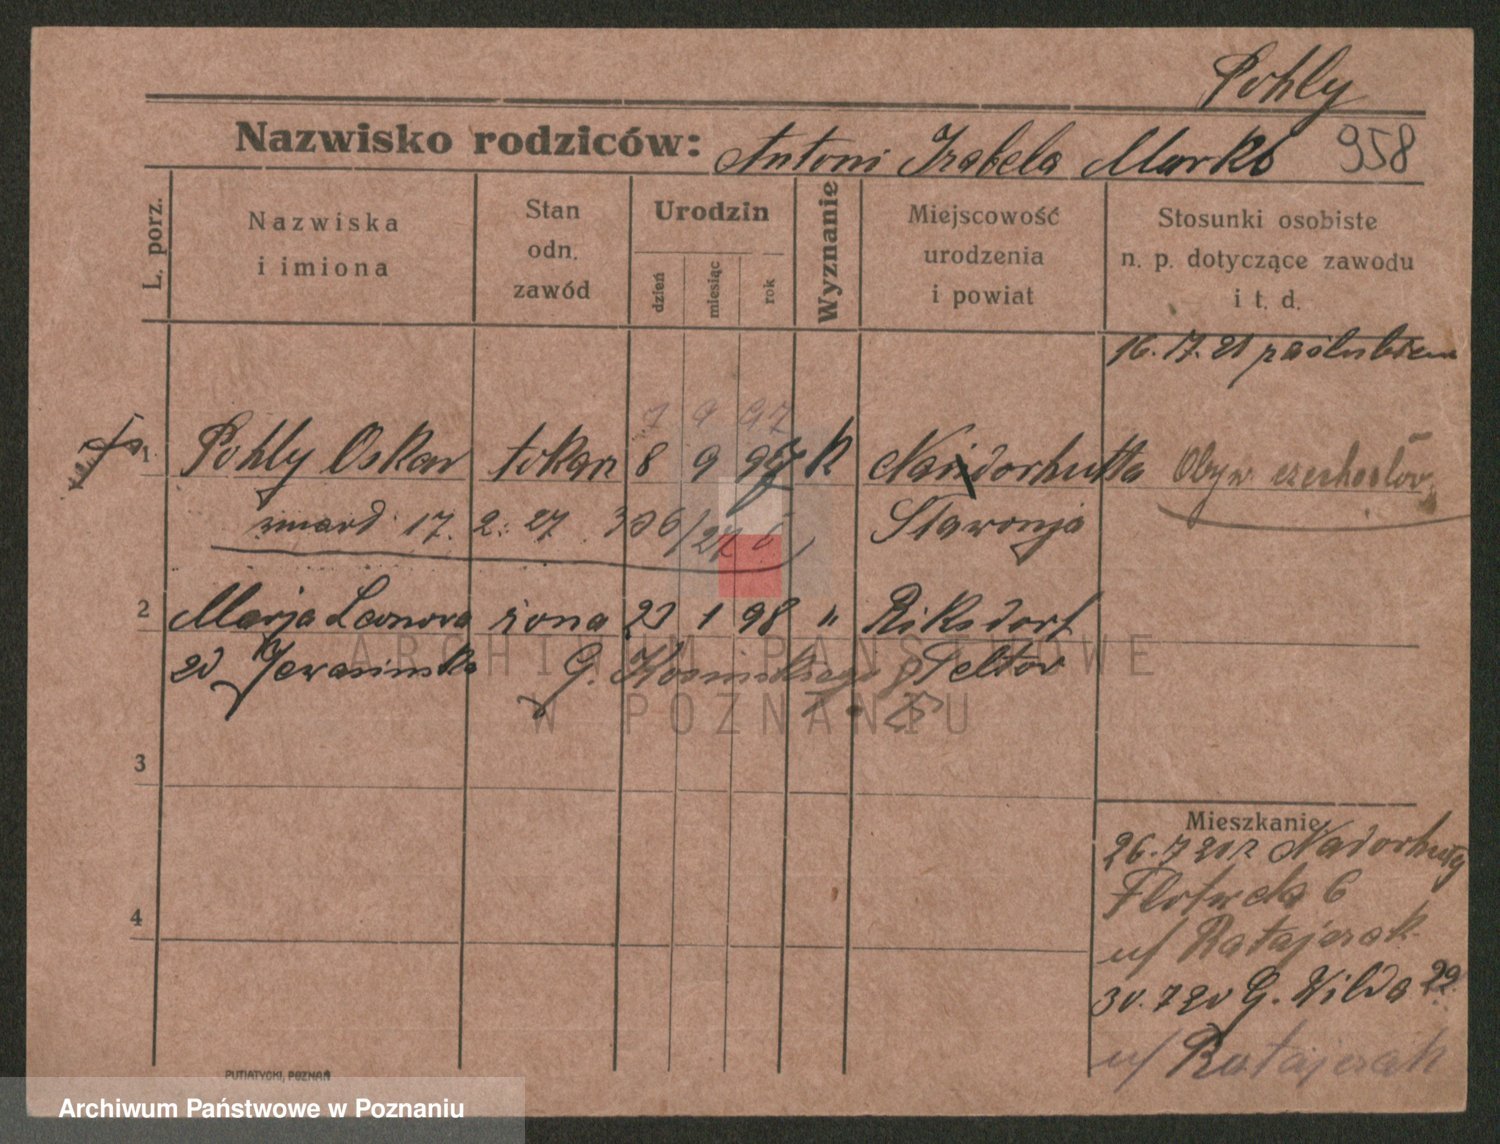 Pohly
Nazwisko rodziców: Antoni Izabela Marko 958
L. porz.
Nazwiska
i imiona
Stan
odn.
zawód
Urodzin
dzień
miesiąc
rok
Wyznanie
Miejscowość
urodzenia
i powiat
Stosunki osobiste
n. p. dotyczące zawodu
i t. d.
16.17.21
7 9 97
1 Pohly Oskar tokarz 8 9 K Obyw. czechosłow.
zmarł 17. 2. 27 306/27
Slawonja
2 Marja Leonora żona 23 1 98 " Riksdorf
zd G. Teltow
ARCHIWUM PAŃSTWOWE
W POZNANIU
3
Mieszkanie
26.7 Nadorhuta
6
4
u/ Ratajczak
30.7 20 G. Wilda 22
u/ Ratajczak
PUTIATYCKI, POZNAŃ
Archiwum Państwowe w Poznaniu